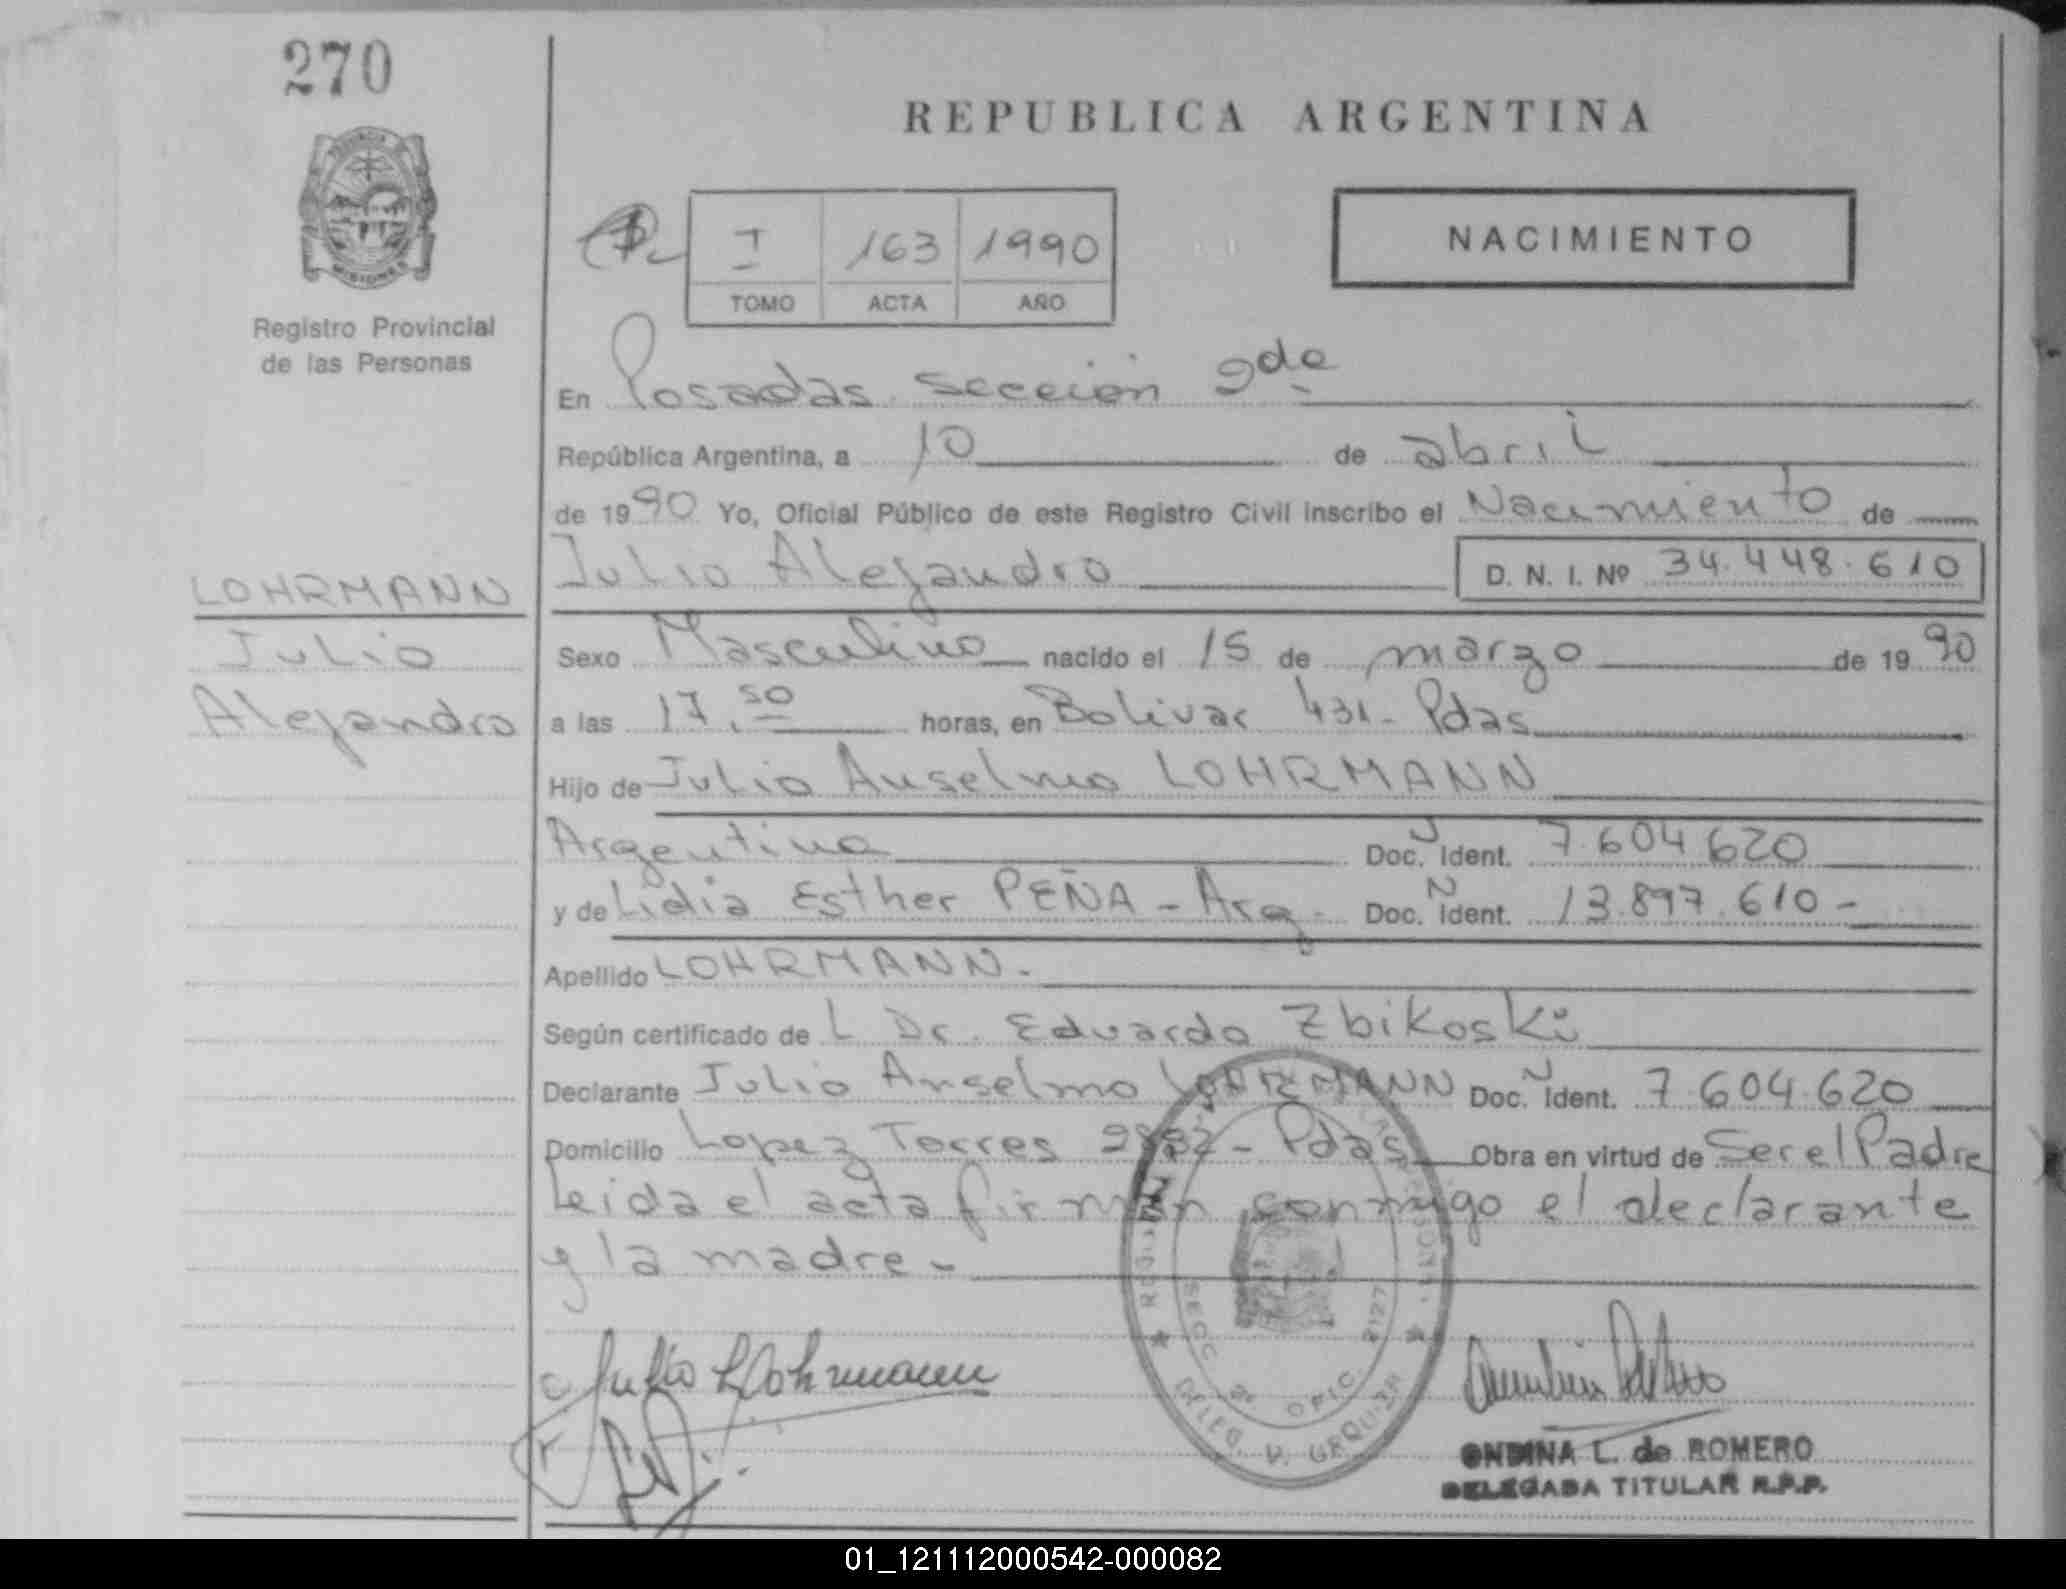 270
REPUBLICA ARGENTINA
PROVINCIA
MISIONES
Registro Provincial
de las Personas
I 163 1990
TOMO ACTA AÑO
NACIMIENTO
En Posadas sección 2da
República Argentina, a 10 de abril
de 1990 Yo, Oficial Público de este Registro Civil inscribo el Nacimiento de
Julio Alejandro D. N. I. Nº 34.448.610
LOHRMANN
Julio
Alejandro
Sexo Masculino nacido el 15 de marzo de 1990
a las 17.50 horas, en Bolivar 431- Pdas
Hijo de Julio Anselmo LOHRMANN
Argentina Doc. Ident. 7.604 620
y de Lidia Esther PEÑA - Arg. Doc. Ident. 13.897.610-
Apellido LOHRMANN.
Según certificado de L Dr. Eduardo Zbikoski
Declarante Julio Anselmo LOHRMANN Doc. Ident. 7.604.620
Domicilio Lopez Torres - Pdas Obra en virtud de Ser el Padre
Leida el acta firman conmigo el declarante
y la madre-
SECC 2º OFIC 8127
DELEG. V. URQUIZA
Julio Lohrmann
ONDINA L. de ROMERO
DELEGADA TITULAR R.P.P.
01_121112000542-000082